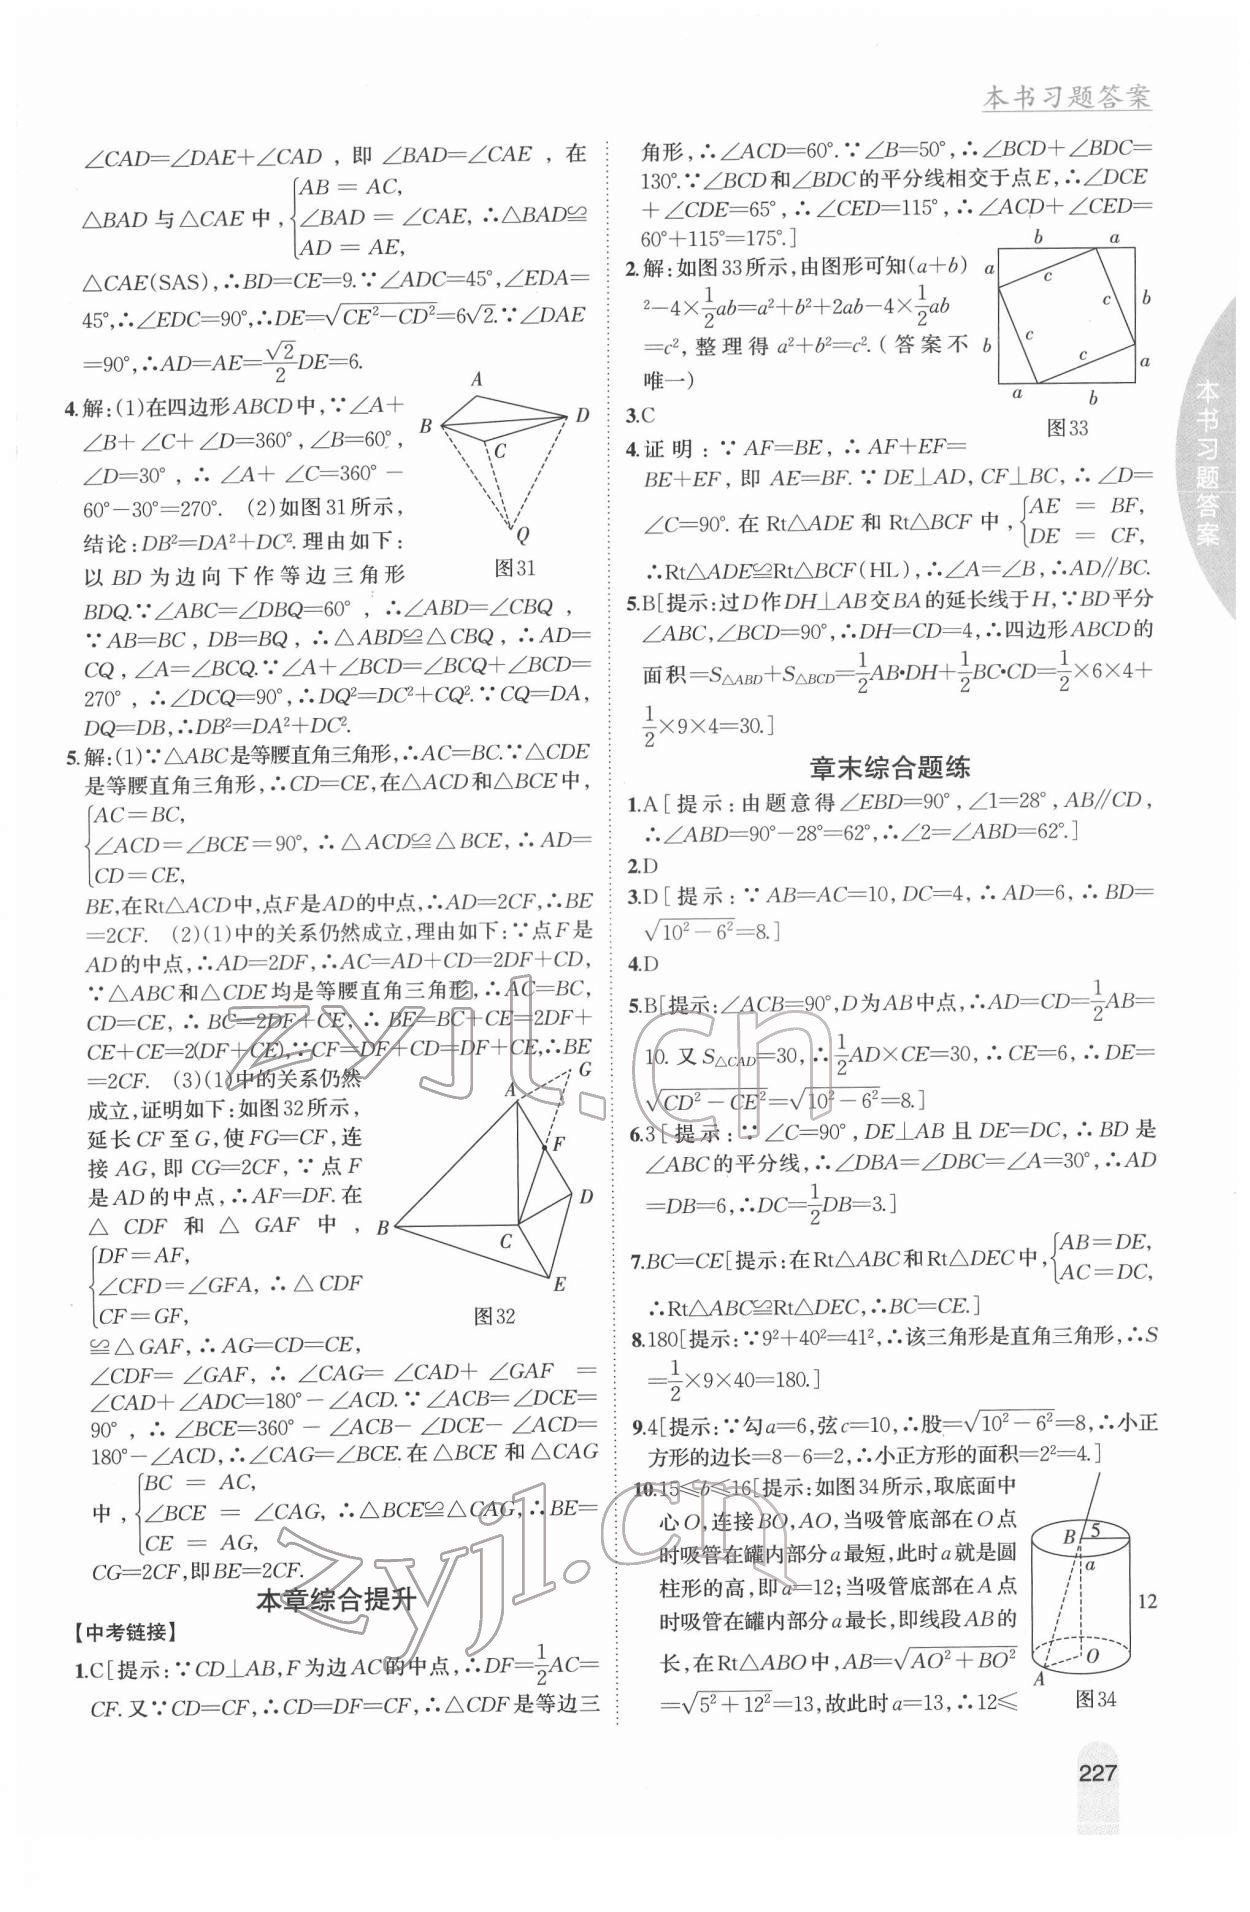 本书习题答案
∠CAD=∠DAE+∠CAD，即∠BAD=∠CAE，在
△BAD与△CAE中，{AB=AC, ∠BAD=∠CAE, AD=AE, ∴△BAD≌
△CAE(SAS)，∴BD=CE=9.∵∠ADC=45°，∠EDA=
45°，∴∠EDC=90°，∴DE=√(CE²−CD²)=6√2.∵∠DAE
=90°，∴AD=AE=√2/2 DE=6.
4.解：(1)在四边形ABCD中，∵∠A+
∠B+∠C+∠D=360°，∠B=60°，
∠D=30°，∴∠A+∠C=360°−
60°−30°=270°. (2)如图31所示，
结论：DB²=DA²+DC².理由如下：
以BD为边向下作等边三角形
BDQ.∵∠ABC=∠DBQ=60°，∴∠ABD=∠CBQ，
∵AB=BC，DB=BQ，∴△ABD≌△CBQ，∴AD=
CQ，∠A=∠BCQ.∵∠A+∠BCD=∠BCQ+∠BCD=
270°，∴∠DCQ=90°，∴DQ²=DC²+CQ².∵CQ=DA，
DQ=DB，∴DB²=DA²+DC².
A
B
C
D
Q
图31
5.解：(1)∵△ABC是等腰直角三角形，∴AC=BC.∵△CDE
是等腰直角三角形，∴CD=CE，在△ACD和△BCE中，
{AC=BC,
∠ACD=∠BCE=90°，∴△ACD≌△BCE，∴AD=
CD=CE,
BE，在Rt△ACD中，点F是AD的中点，∴AD=2CF，∴BE
=2CF. (2)(1)中的关系仍然成立，理由如下：∵点F是
AD的中点，∴AD=2DF，∴AC=AD+CD=2DF+CD，
∵△ABC和△CDE均是等腰直角三角形，∴AC=BC，
CD=CE，∴BC=2DF+CE，∴BE=BC+CE=2DF+
CE+CE=2(DF+CE)，∵CF=DF+CD=DF+CE，∴BE
=2CF. (3)(1)中的关系仍然
成立，证明如下：如图32所示，
延长CF至G，使FG=CF，连
接AG，即CG=2CF，∵点F
是AD的中点，∴AF=DF.在
△CDF和△GAF中，
{DF=AF,
∠CFD=∠GFA，∴△CDF
CF=GF,
≌△GAF，∴AG=CD=CE，
∠CDF=∠GAF，∴∠CAG=∠CAD+∠GAF=
∠CAD+∠ADC=180°−∠ACD.∵∠ACB=∠DCE=
90°，∴∠BCE=360°−∠ACB−∠DCE−∠ACD=
180°−∠ACD，∴∠CAG=∠BCE.在△BCE和△CAG
中，{BC=AC, ∠BCE=∠CAG, CE=AG, ∴△BCE≌△CAG，∴BE=
CG=2CF，即BE=2CF.
G
A
F
D
B
C
E
图32
本章综合提升
【中考链接】
1.C[提示：∵CD⊥AB，F为边AC的中点，∴DF=1/2 AC=
CF.又∵CD=CF，∴CD=DF=CF，∴△CDF是等边三
角形，∴∠ACD=60°.∵∠B=50°，∴∠BCD+∠BDC=
130°.∵∠BCD和∠BDC的平分线相交于点E，∴∠DCE
+∠CDE=65°，∴∠CED=115°，∴∠ACD+∠CED=
60°+115°=175°.]
2.解：如图33所示，由图形可知(a+b)
²−4×1/2 ab=a²+b²+2ab−4×1/2 ab
=c²，整理得a²+b²=c².(答案不
唯一)
b a
a
c
c
b
b
c
c
a
a
b
图33
3.C
4.证明：∵AF=BE，∴AF+EF=
BE+EF，即AE=BF.∵DE⊥AD，CF⊥BC，∴∠D=
∠C=90°.在Rt△ADE和Rt△BCF中，{AE=BF, DE=CF,
∴Rt△ADE≌Rt△BCF(HL)，∴∠A=∠B，∴AD∥BC.
5.B[提示：过D作DH⊥AB交BA的延长线于H，∵BD平分
∠ABC，∠BCD=90°，∴DH=CD=4，∴四边形ABCD的
面积=S△ABD+S△BCD=1/2 AB•DH+1/2 BC•CD=1/2×6×4+
1/2×9×4=30.]
章末综合题练
1.A[提示：由题意得∠EBD=90°，∠1=28°，AB∥CD，
∴∠ABD=90°−28°=62°，∴∠2=∠ABD=62°.]
2.D
3.D[提示：∵AB=AC=10，DC=4，∴AD=6，∴BD=
√(10²−6²)=8.]
4.D
5.B[提示：∠ACB=90°，D为AB中点，∴AD=CD=1/2 AB=
10.又S△CAD=30，∴1/2 AD×CE=30，∴CE=6，∴DE=
√(CD²−CE²)=√(10²−6²)=8.]
6.3[提示：∵∠C=90°，DE⊥AB且DE=DC，∴BD是
∠ABC的平分线，∴∠DBA=∠DBC=∠A=30°，∴AD
=DB=6，∴DC=1/2 DB=3.]
7.BC=CE[提示：在Rt△ABC和Rt△DEC中，{AB=DE, AC=DC,
∴Rt△ABC≌Rt△DEC，∴BC=CE.]
8.180[提示：∵9²+40²=41²，∴该三角形是直角三角形，∴S
=1/2×9×40=180.]
9.4[提示：∵勾a=6，弦c=10，∴股=√(10²−6²)=8，∴小正
方形的边长=8−6=2，∴小正方形的面积=2²=4.]
10.15≤b≤16[提示：如图34所示，取底面中
心O，连接BO，AO，当吸管底部在O点
时吸管在罐内部分a最短，此时a就是圆
柱形的高，即a=12；当吸管底部在A点
时吸管在罐内部分a最长，即线段AB的
长，在Rt△ABO中，AB=√(AO²+BO²)
=√(5²+12²)=13，故此时a=13，∴12≤
B 5
a
12
O
A
图34
本书习题答案
227
zyjl.cn
zyjl.cn